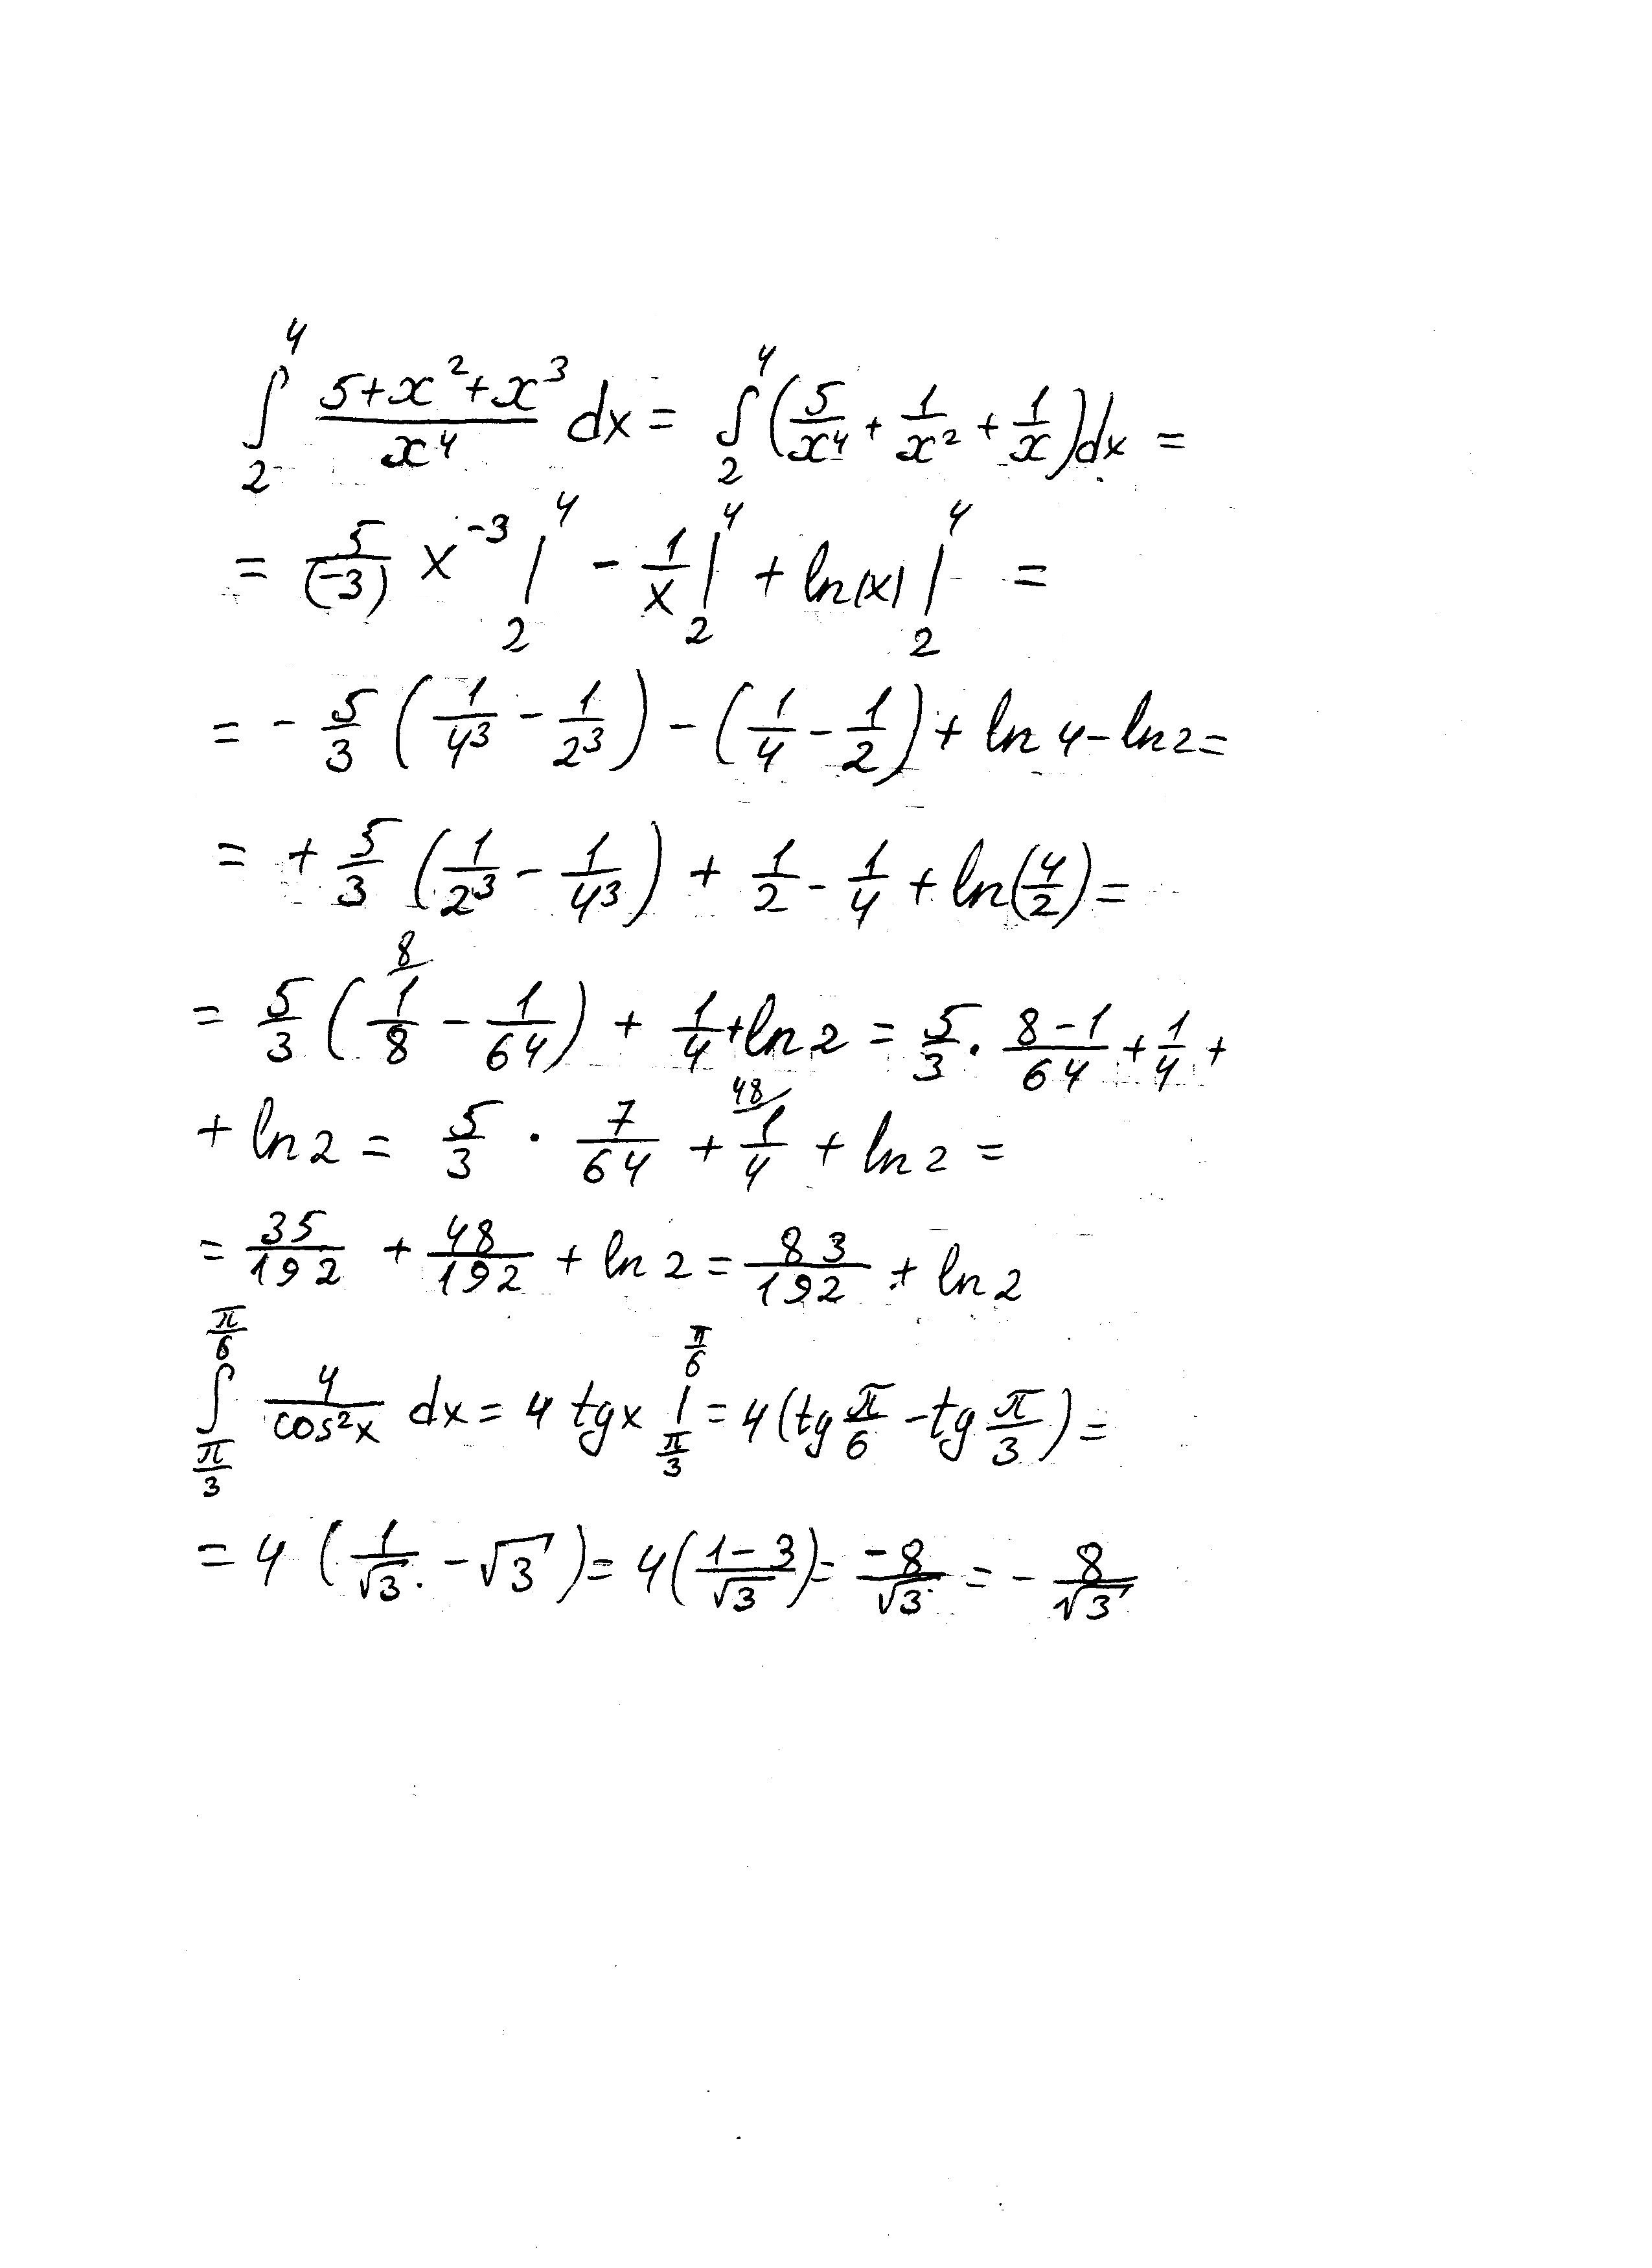 ∫₂⁴ (5+x²+x³)/x⁴ dx = ∫₂⁴ (5/x⁴ + 1/x² + 1/x)dx =
= 5/(-3) x⁻³ |₂⁴ - 1/x |₂⁴ + ln|x| |₂⁴ =
= - 5/3 (1/4³ - 1/2³) - (1/4 - 1/2) + ln 4 - ln 2 =
= + 5/3 (1/2³ - 1/4³) + 1/2 - 1/4 + ln(4/2) =
= 5/3 (⁸⁄1/8 - 1/64) + 1/4 + ln 2 = 5/3 · (8-1)/64 + 1/4 +
+ ln 2 = 5/3 · 7/64 + ⁴⁸⁄1/4 + ln 2 =
= 35/192 + 48/192 + ln 2 = 83/192 + ln 2
∫_{π/3}^{π/6} 4/cos²x dx = 4 tgx |_{π/3}^{π/6} = 4(tg π/6 - tg π/3) =
= 4 (1/√3 - √3) = 4((1-3)/√3) = -8/√3 = - 8/√3